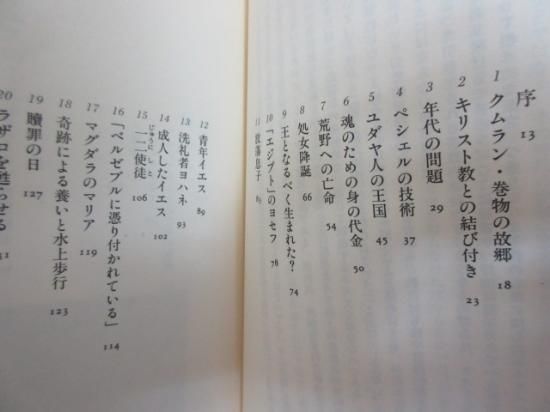 序 13
1 クムラン・巻物の故郷 18
2 キリスト教との結び付き 23
3 年代の問題 29
4 ペシェルの技術 37
5 ユダヤ人の王国 45
6 魂のための身の代金 50
7 荒野への亡命 54
8 処女降誕 66
9 王となるべく生まれた? 74
10 「エジプト」のヨセフ 78
11 放蕩息子
12 青年イエス 89
13 洗礼者ヨハネ 93
14 成人したイエス 102
15 一二使徒 106
じゅうにしと
16 「ベルゼブルに憑り付かれている」 114
17 マグダラのマリア 119
18 奇跡による養いと水上歩行 123
19 贖罪の日 127
20 ラザロを甦らせる